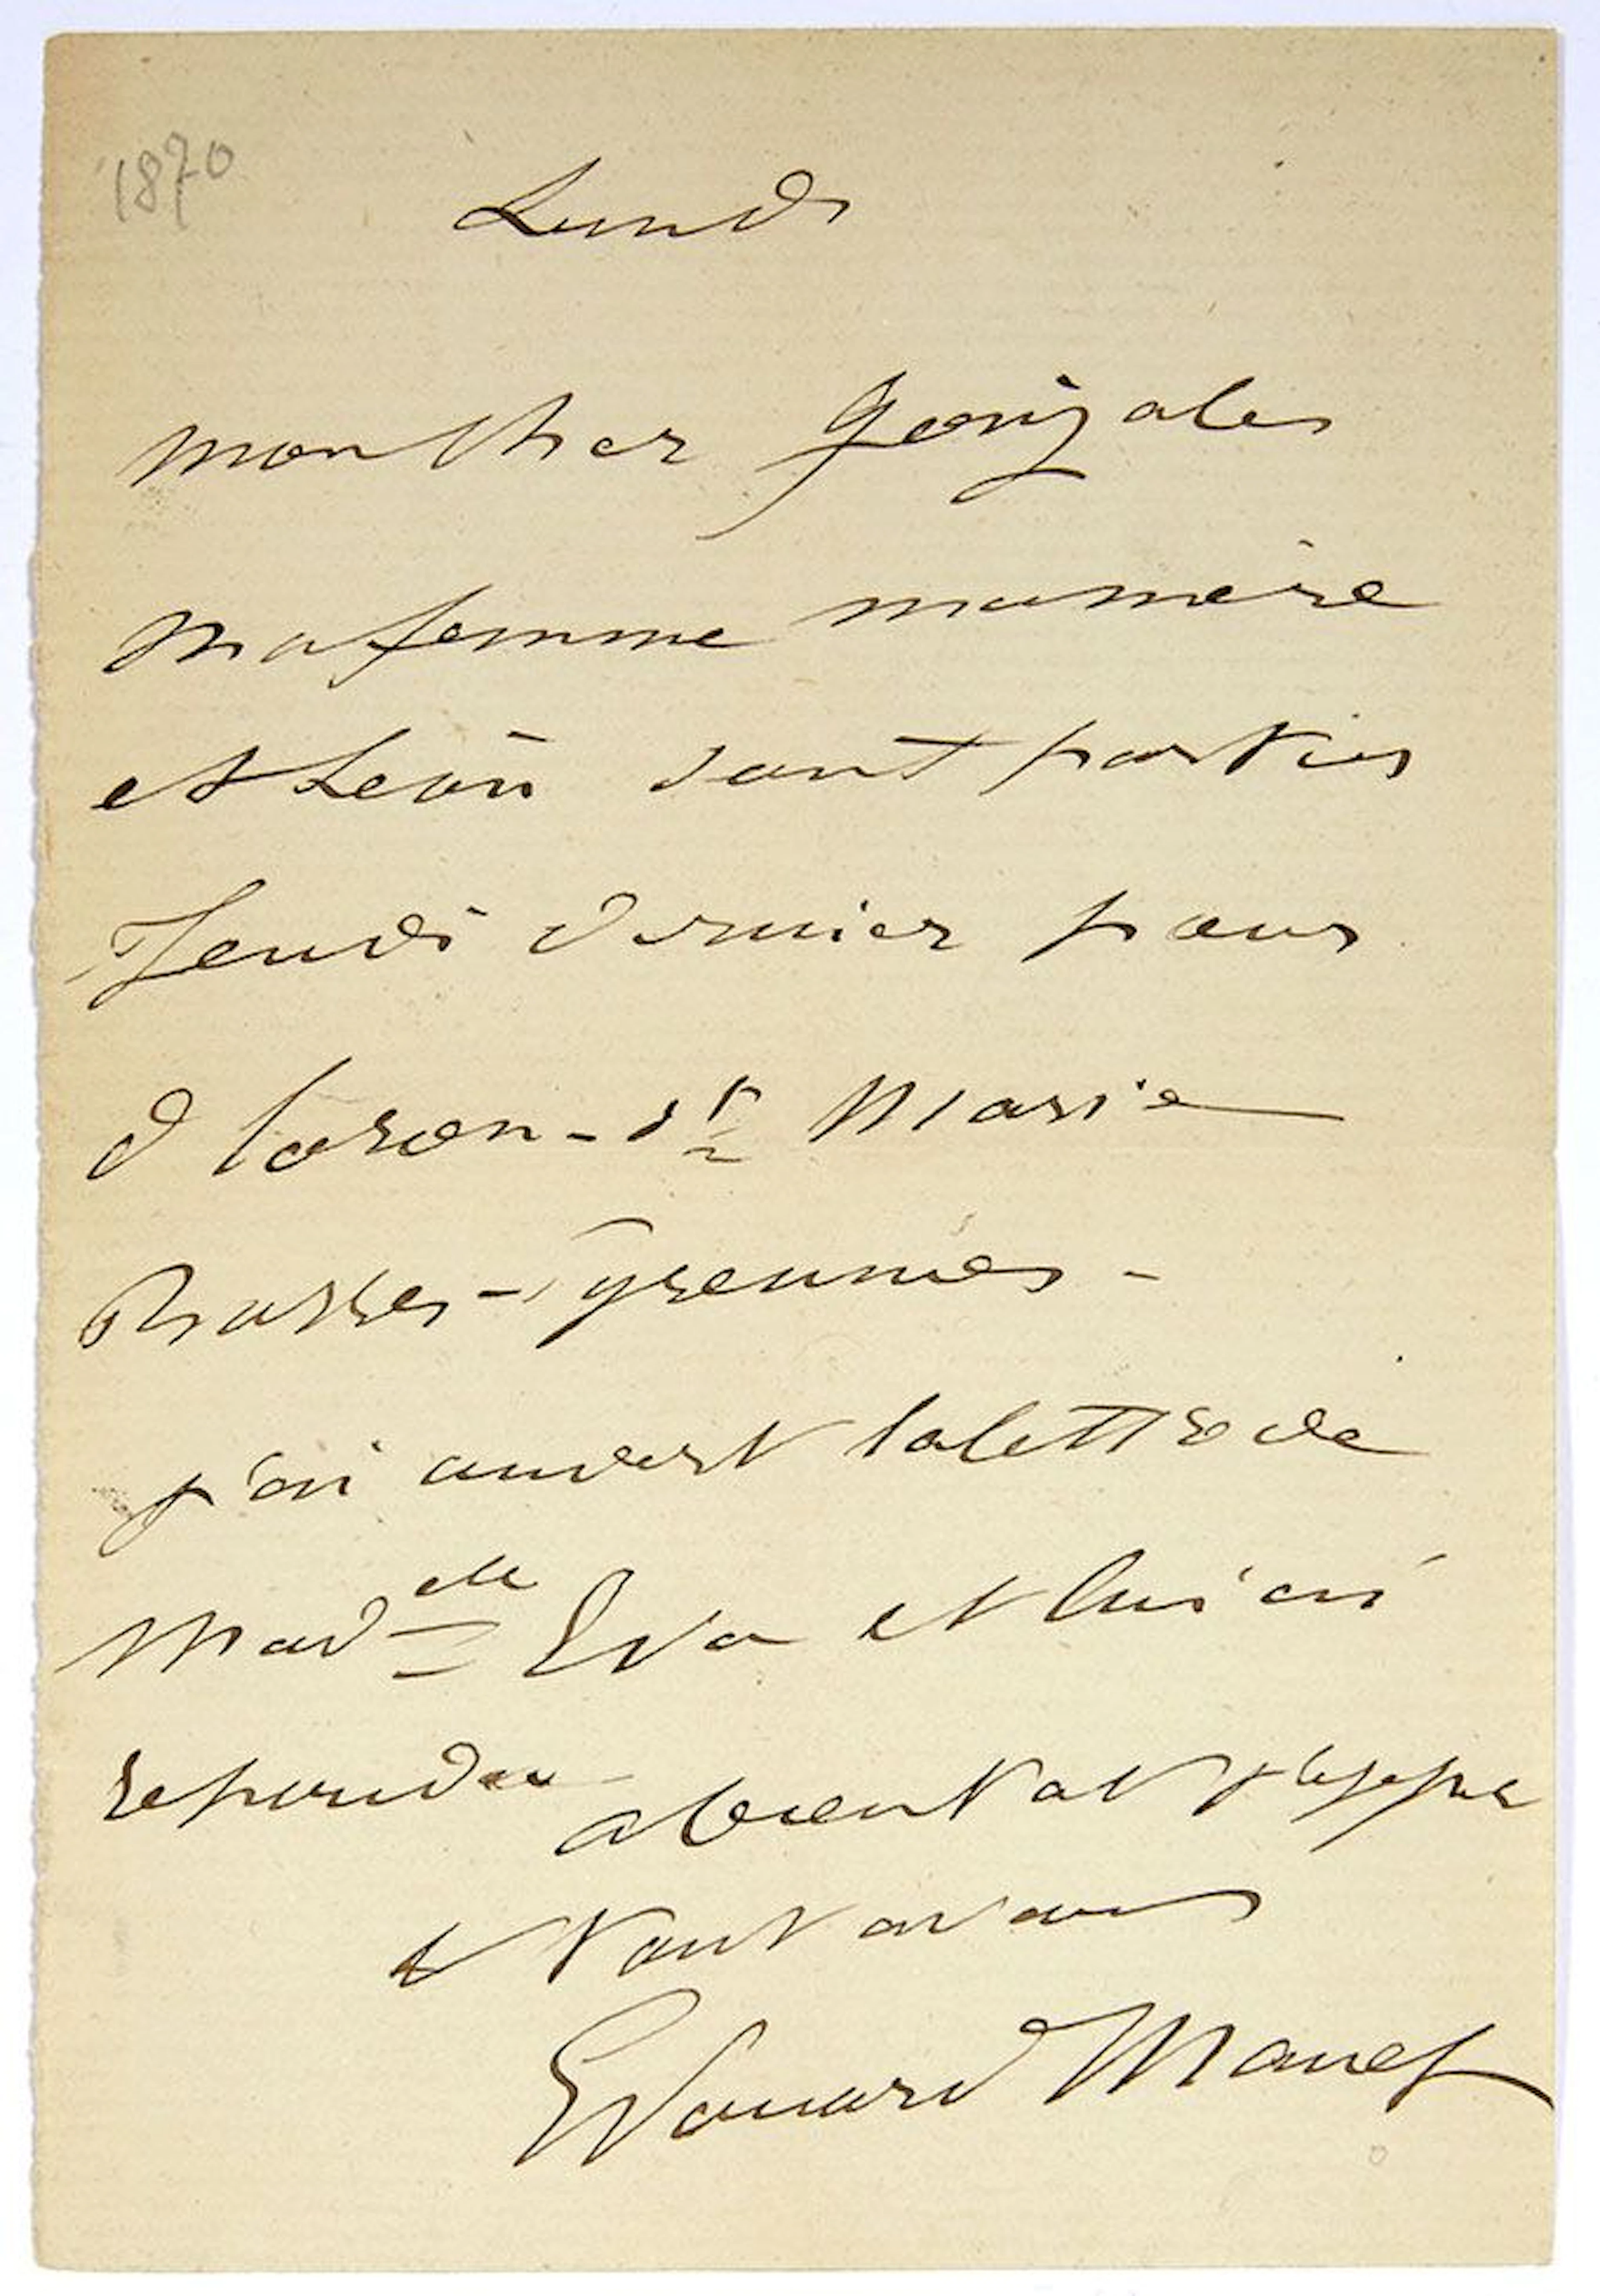 1870
Lundi
mon cher Gonzales
Ma femme ma mère
et Léon sont partis
Jeudi dernier pour
Oloron-Ste Marie
Basses-Pyrennées-
j'ai ouvert la lettre de
Madelle Eva et lui ai
repondu
a bientot
et tout a vous
Edouard Manet